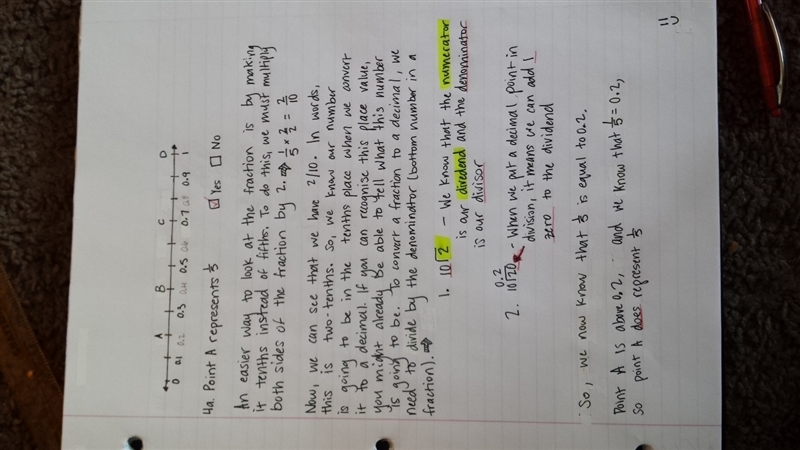 A B C D
0 0.1 0.2 0.3 0.4 0.5 0.6 0.7 0.8 0.9 1
4a. Point A represents 1/5 ☑ Yes ☐ No
An easier way to look at the fraction is by making
it tenths instead of fifths. To do this, we must multiply
both sides of the fraction by 2. ⇒ 1/5 × 2/2 = 2/10
Now, we can see that we have 2/10. In words,
this is two-tenths. So, we know our number
is going to be in the tenths place when we convert
it to a decimal. If you can recognise this place value,
you might already be able to tell what this number
is going to be. To convert a fraction to a decimal, we
need to divide by the denominator (bottom number in a
fraction). ⇒
1. 10⟌2 - We know that the numerator
is our divedend and the denominator
is our divisor
0.2
2. 10⟌2.0 - When we put a decimal point in
division, it means we can add 1
zero to the dividend
So, we now know that 1/5 is equal to 0.2.
Point A is above 0.2, and we know that 1/5 = 0.2,
so point A does represent 1/5
=)